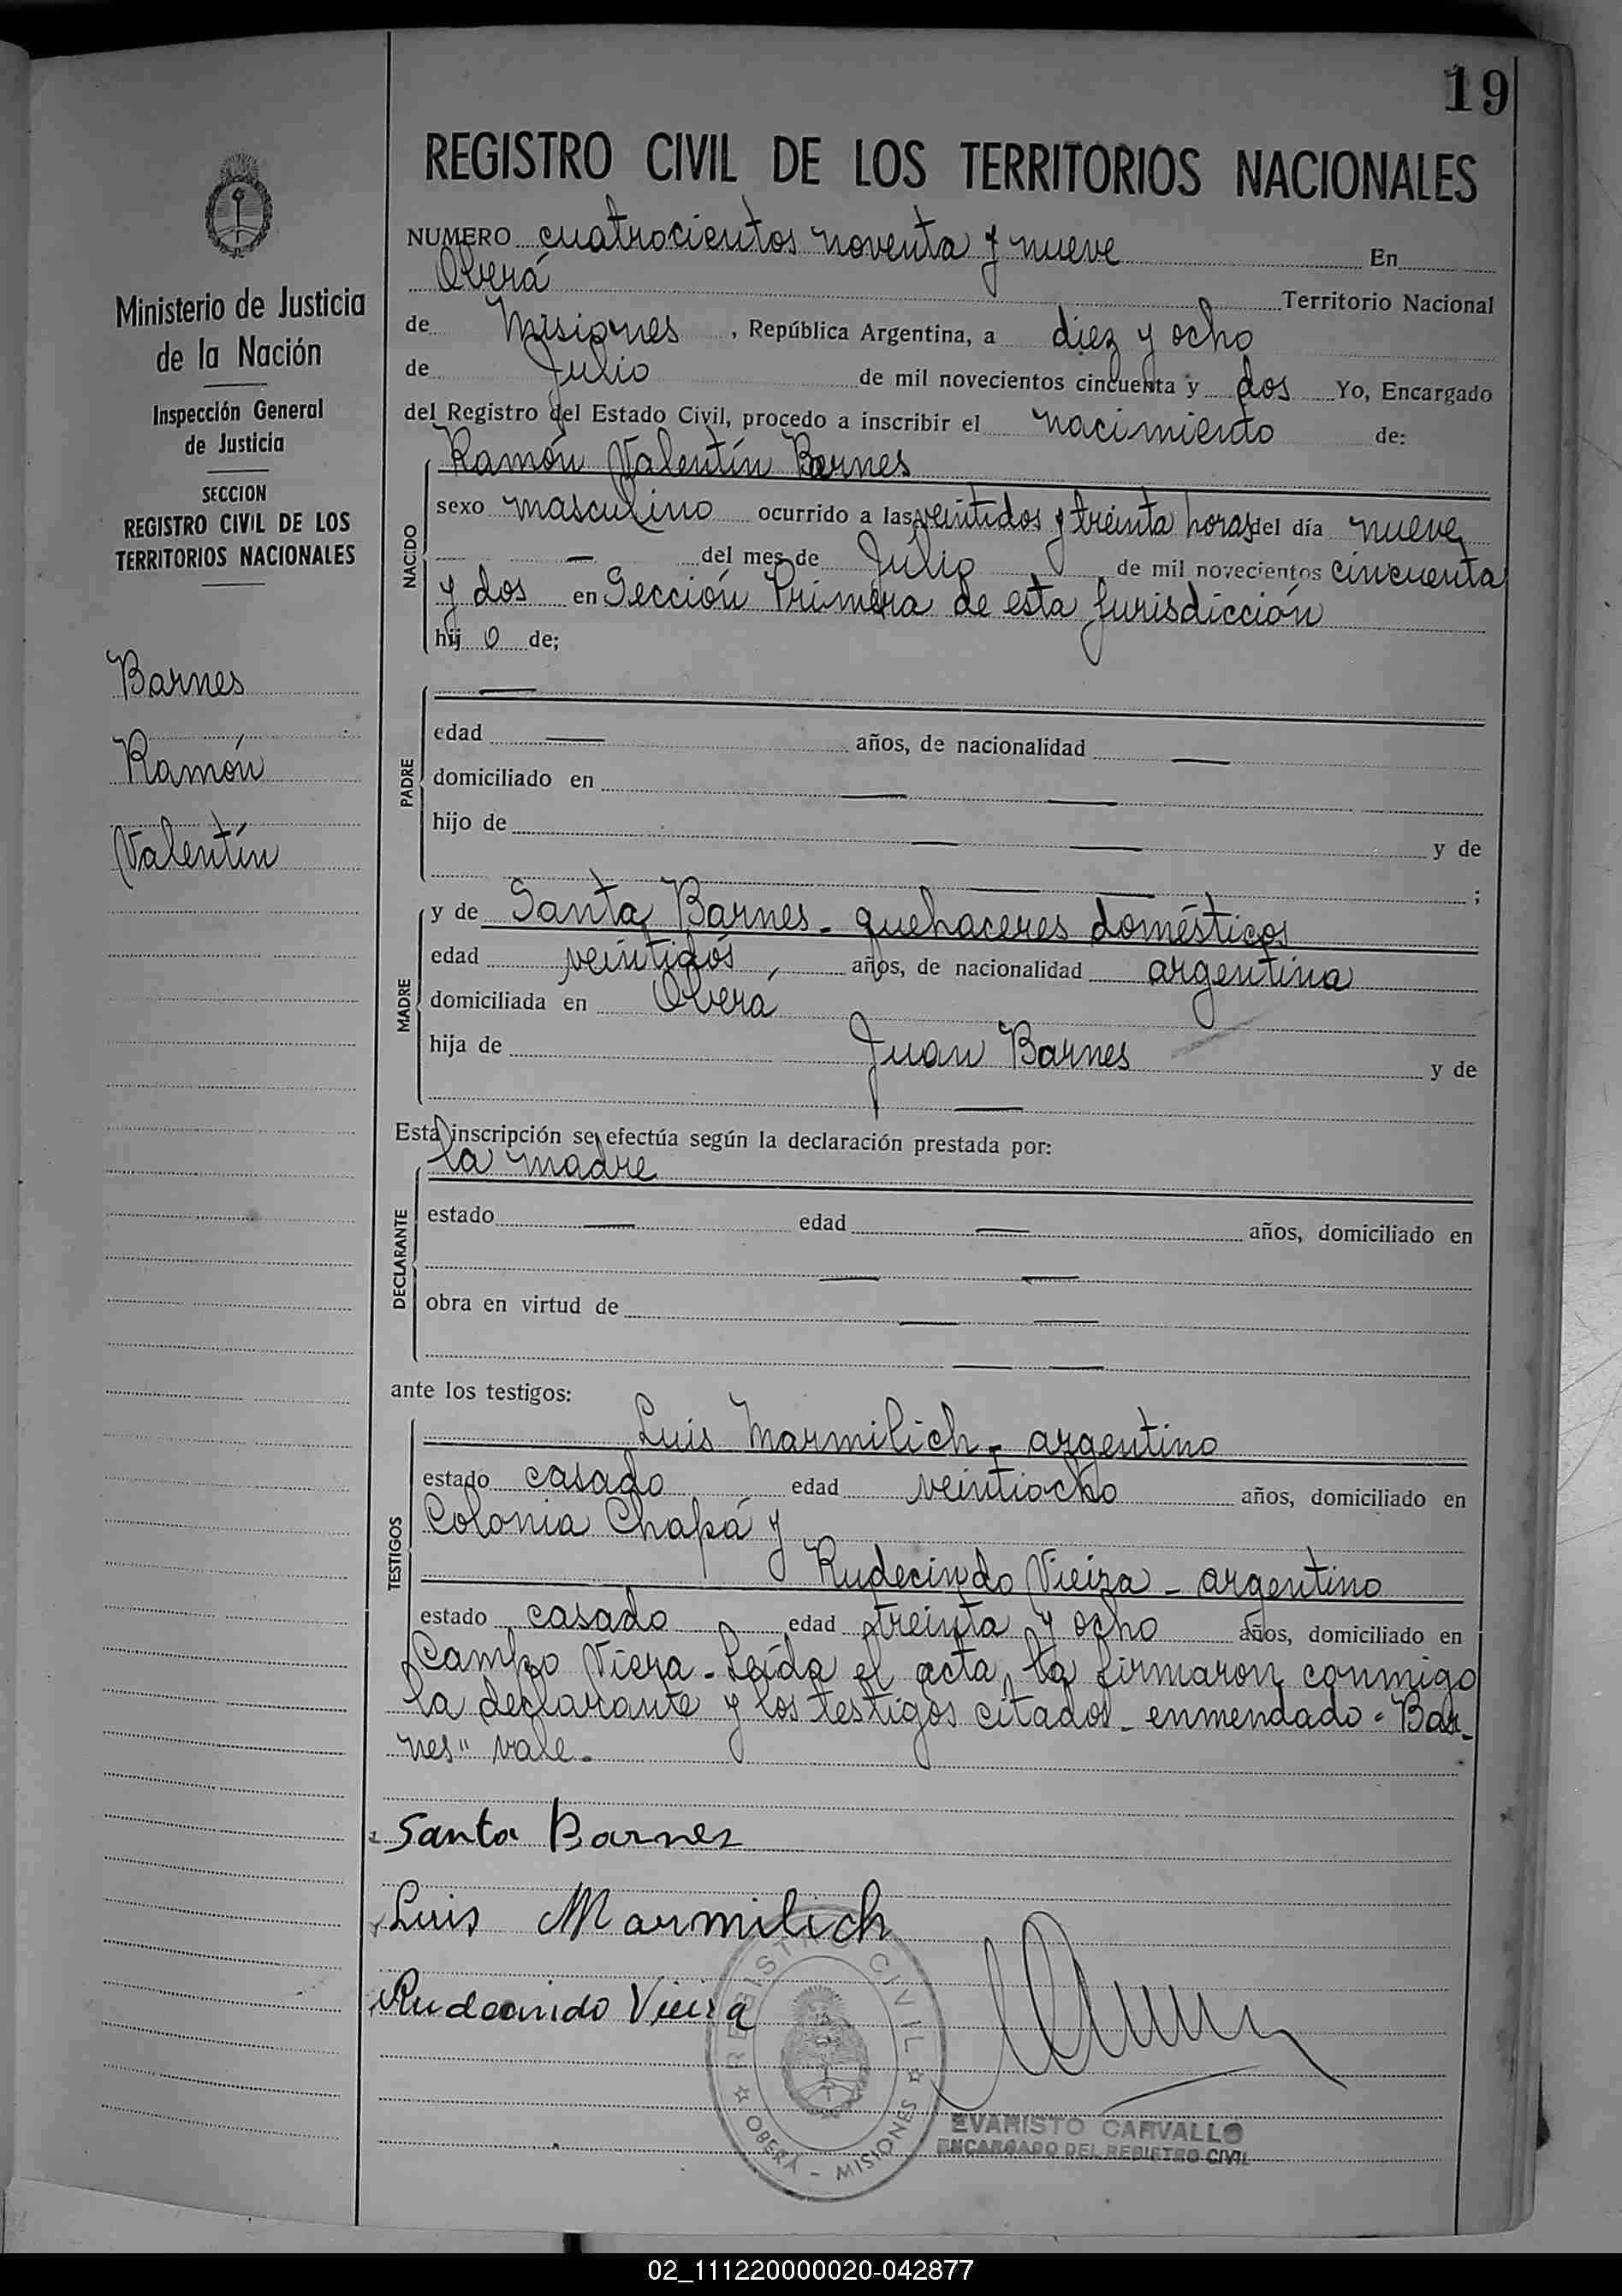 19
REGISTRO CIVIL DE LOS TERRITORIOS NACIONALES
Ministerio de Justicia
de la Nación
Inspección General
de Justicia
SECCION
REGISTRO CIVIL DE LOS
TERRITORIOS NACIONALES
Barnes
Ramón
Valentín
NUMERO cuatrocientos noventa y nueve En
Oberá Territorio Nacional
de Misiones, República Argentina, a diez y ocho
de Julio de mil novecientos cincuenta y dos Yo, Encargado
del Registro del Estado Civil, procedo a inscribir el nacimiento de:
NACIDO
Ramón Valentín Barnes
sexo masculino ocurrido a las veintidos y treinta horas del día nueve
— del mes de Julio de mil novecientos cincuenta
y dos en Sección Primera de esta jurisdicción
hij o de;
PADRE
—
edad — años, de nacionalidad —
domiciliado en — —
hijo de — — y de
— — ;
MADRE
y de Santa Barnes - quehaceres domésticos
edad veintidós años, de nacionalidad argentina
domiciliada en Oberá
hija de Juan Barnes y de
—
Esta inscripción se efectúa según la declaración prestada por:
DECLARANTE
la madre
estado — edad — años, domiciliado en
— —
obra en virtud de — —
— —
ante los testigos:
TESTIGOS
Luis Marmilich - argentino
estado casado edad veintiocho años, domiciliado en
Colonia Chapá y
Rudecindo Vieira - argentino
estado casado edad treinta y ocho años, domiciliado en
Campo Viera - Leída el acta, la firmaron conmigo
la declarante y los testigos citados - enmendado = Bar-
nes" vale.
Santa Barnes
Luis Marmilich
Rudecindo Vieira
REGISTRO CIVIL
OBERÁ - MISIONES
EVARISTO CARVALLO
ENCARGADO DEL REGISTRO CIVIL
02_111220000020-042877